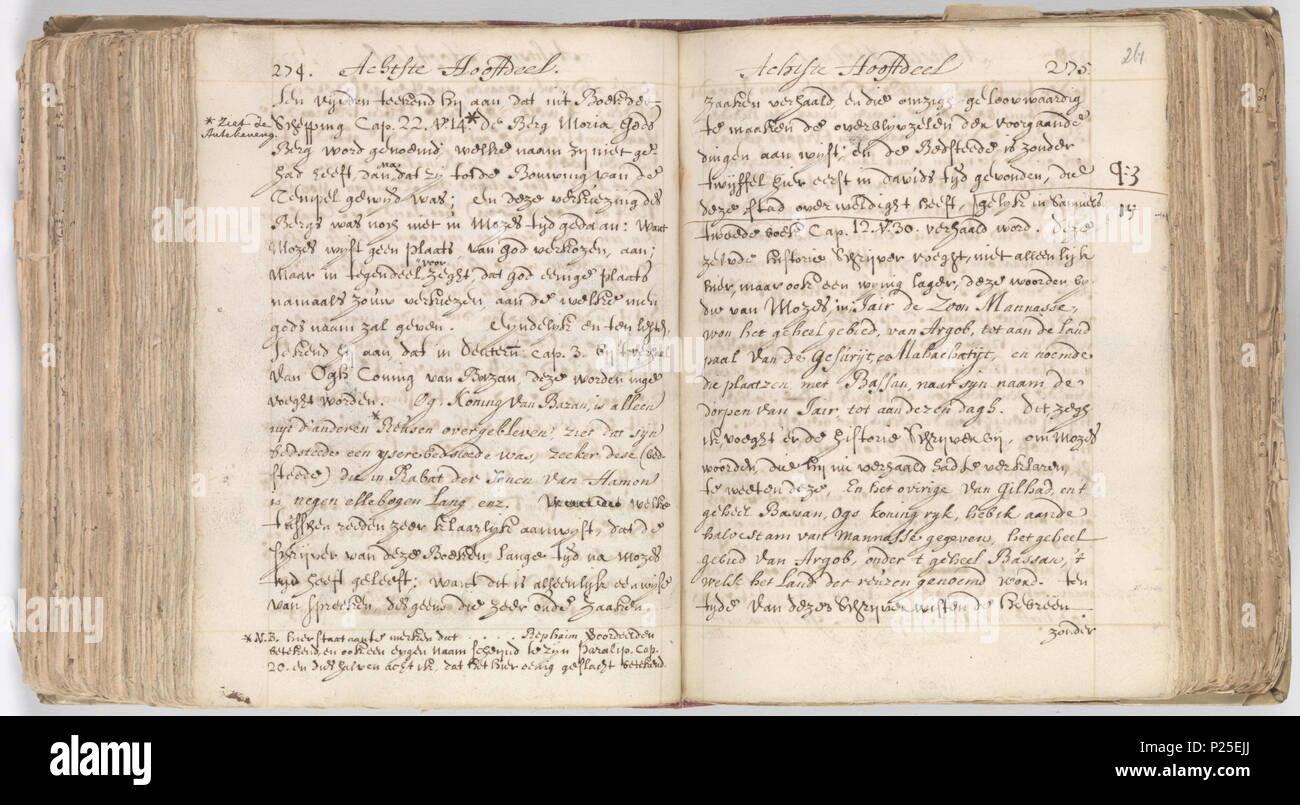 274. Achtste Hooftdeel.
Ten vijfden teekend hij aan, dat in't Boek der
* Ziet de Antekeveng.
Schepping Cap. 22. v. 14.* de Berg Moria Gods
Berg word genoemd; welke naam zij niet ge-
had heeft, dan na dat zy tot de Bouwing van de
Tempel gewijd was; en deze verkiezing des
Bergs was noch niet in Mozes tijd gedaan: Want
Mozes wijst geen plaats van God verkozen, aan;
Maar in tegendeel voorzeght dat God eenige plaats
namaals zouw verkiezen, aan de welke men
gods naam zal geven. Eyndelijk en ten lesten,
tekend hij aan, dat in Deuteron: Cap. 3. by't verhael
van Ogh Coning van Bazan, deze worden inge
voeght worden. Og, Koning van Bazan, is alleen
uijt d'anderen *Reusen overgebleven, ziet dat sijn
bedstede een ysere bedstede was, zeker dese (bed-
steede) die in Rabat der Sonen van Hamon
is negen ellebogen Lang enz. welke
tusschen reeden zeer klaarlijk aanwijst, dat de
Schrijver van deze Boeken, lange tijd na Mozes
tijd heeft geleeft; want dit is alleenlijk een wijse
van spreeken des geens die zeer oude zaaken
* N.B. hier staat aante merken dat . . . . Rephaim Voordeelden
betekend, en ook een eygen naam schijnd te zijn Paralip. Cap.
20. en dies halven acht ik, dat het hier eenig geslacht betekend.
Achtste Hooftdeel 275
261
zaaken verhaald, en die om zigh geloovwaardig
te maaken de overblyvzelen der voorgaande
dingen aan wijst; en de Bedsteede is zonder
twijffel hier eerst in Davids tijd gevonden, die
P:3
deze stad overweldight heeft, gelijk in Samuels
15
tweede boek Cap. 12. v. 30. verhaald word. Deze
zelvde historie Schrijver voeght, niet alleenlijk
hier, maar ook een wijnig lager, deze woorden by
die van Mozes in, Jair de Zoon Mannasse,
won het geheel gebied, van Argob, tot aan de Land
paal van de Gesurijt, en Mahachatijt, en noemde
die plaatzen met Bassan, naar sijn naam, de
dorpen van Jair, tot aan dezen dagh. Dit, zegh
ik, voeght'er de historie Schrijver bij, om Mozes
woorden, die hij nu verhaald had te verklaren,
te weeten deze, En het overige van Gilhad, en't
geheel Bassan, Ogs koning ryk, heb ik aan de
halve stam van Mannasse gegeven, het geheel
gebied van Argob, onder 't geheel Bassan, 't
welk het Land der reuzen genoemd word. ten
tijde van dezen Schrijver wisten de hebreen
zonder